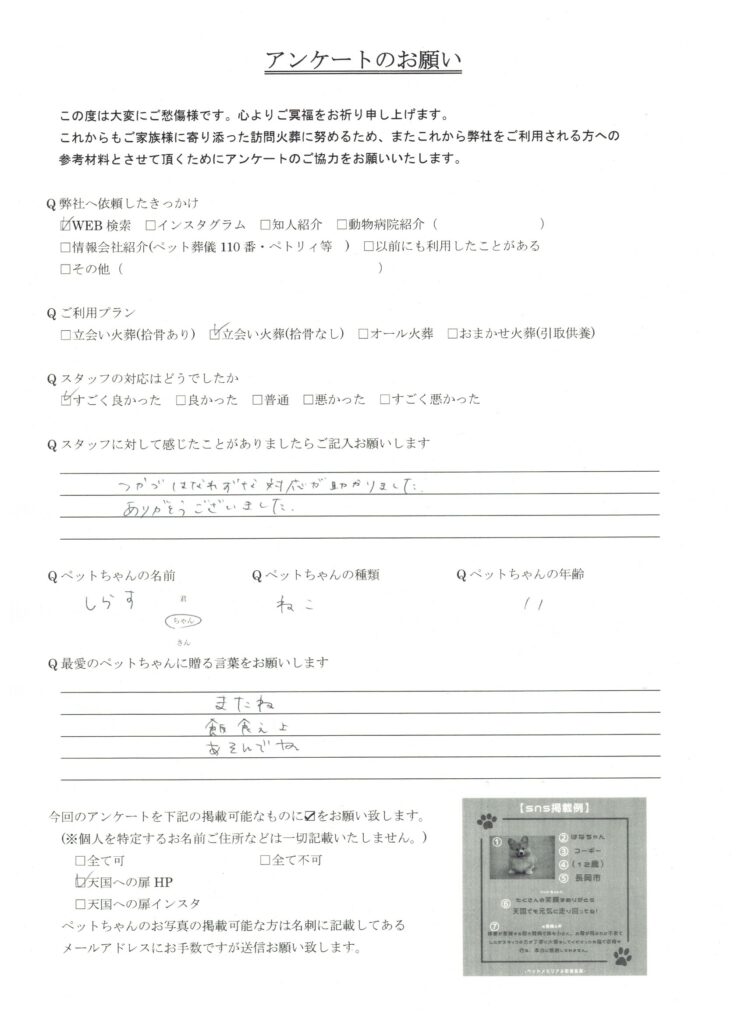 アンケートのお願い
この度は大変にご愁傷様です。心よりご冥福をお祈り申し上げます。
これからもご家族様に寄り添った訪問火葬に努めるため、またこれから弊社をご利用される方への
参考材料とさせて頂くためにアンケートのご協力をお願いいたします。
Q 弊社へ依頼したきっかけ
☑WEB 検索 □インスタグラム □知人紹介 □動物病院紹介（ ）
□情報会社紹介(ペット葬儀 110 番・ペトリィ等 ) □以前にも利用したことがある
□その他（ ）
Q ご利用プラン
□立会い火葬(拾骨あり) ☑立会い火葬(拾骨なし) □オール火葬 □おまかせ火葬(引取供養)
Q スタッフの対応はどうでしたか
☑すごく良かった □良かった □普通 □悪かった □すごく悪かった
Q スタッフに対して感じたことがありましたらご記入お願いします
つかづはなれずな対応が助かりました.
ありがとうございました.
Q ペットちゃんの名前 Q ペットちゃんの種類 Q ペットちゃんの年齢
しらす 君 ちゃん さん ねこ 11
Q 最愛のペットちゃんに贈る言葉をお願いします
またね
飯食えよ
あそんでね
今回のアンケートを下記の掲載可能なものに☑をお願い致します。
(※個人を特定するお名前ご住所などは一切記載いたしません。)
□全て可 □全て不可
☑天国への扉 HP
□天国への扉インスタ
ペットちゃんのお写真の掲載可能な方は名刺に記載してある
メールアドレスにお手数ですが送信お願い致します。
【sns掲載例】
① ② はなちゃん
③ コーギー
④ （12歳）
⑤ 長岡市
⑥ たくさんの笑顔をありがとう
天国でも元気に走り回ってね!
⑦